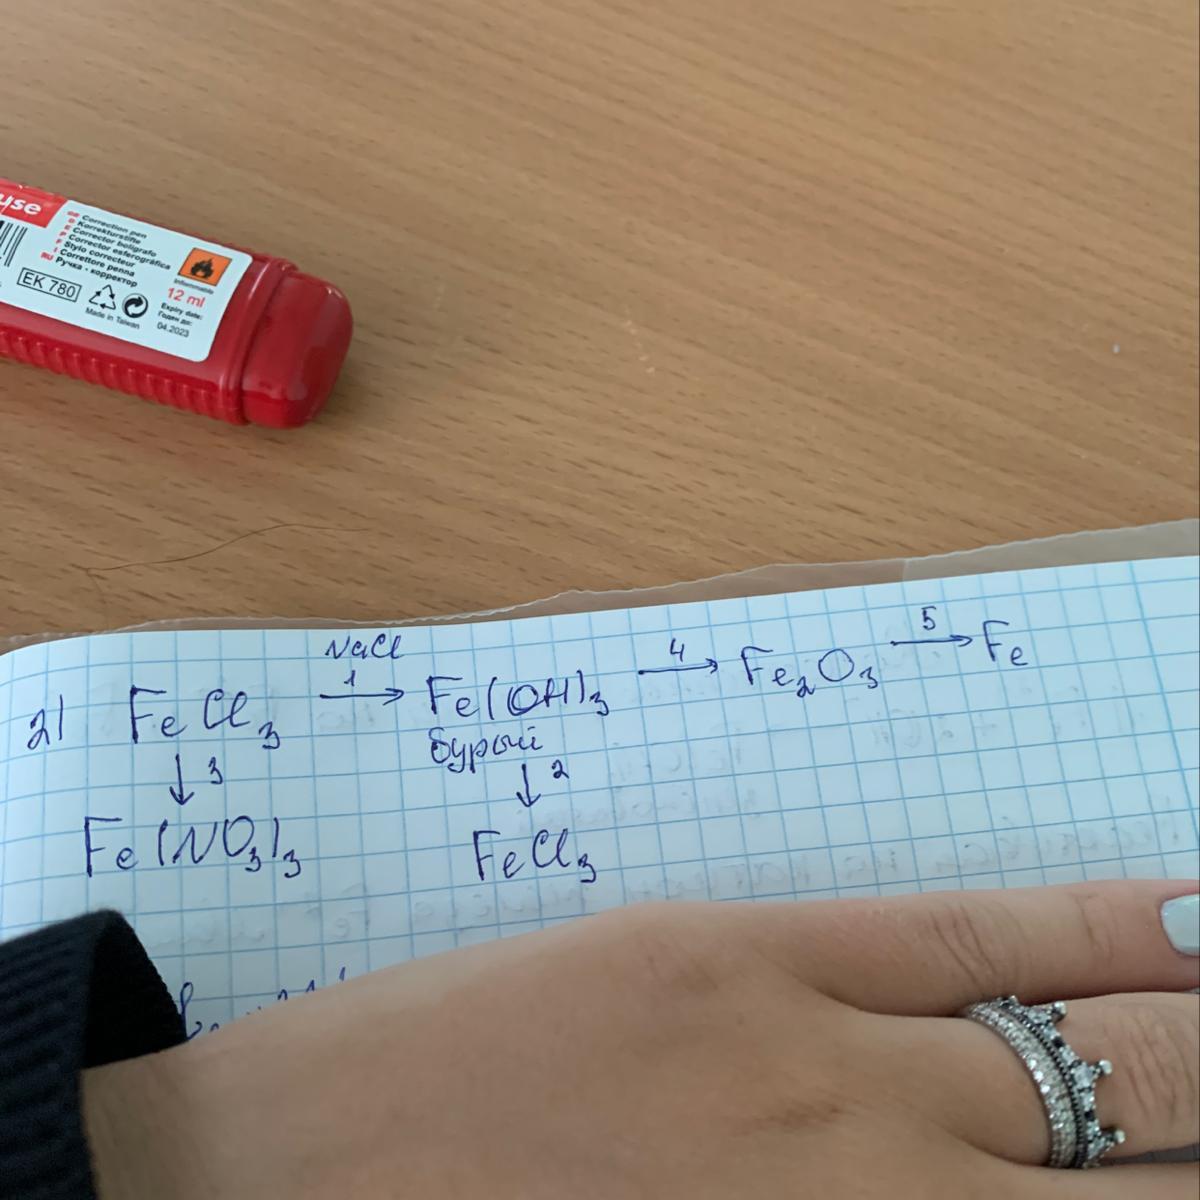 use
GB Correction pen
D Korrekturstifte
E Corrector bolígrafo
P Corrector esferográfica
F Stylo correcteur
I Correttore penna
RU Ручка - корректор
EK 780
Made in Taiwan
Inflammable
12 ml
Expiry date:
Годен до:
04.2023
NaCl
2) FeCl₃ 1→ Fe(OH)₃ 4→ Fe₂O₃ 5→ Fe
бурый
↓ 3 ↓ 2
Fe(NO₃)₃ FeCl₃